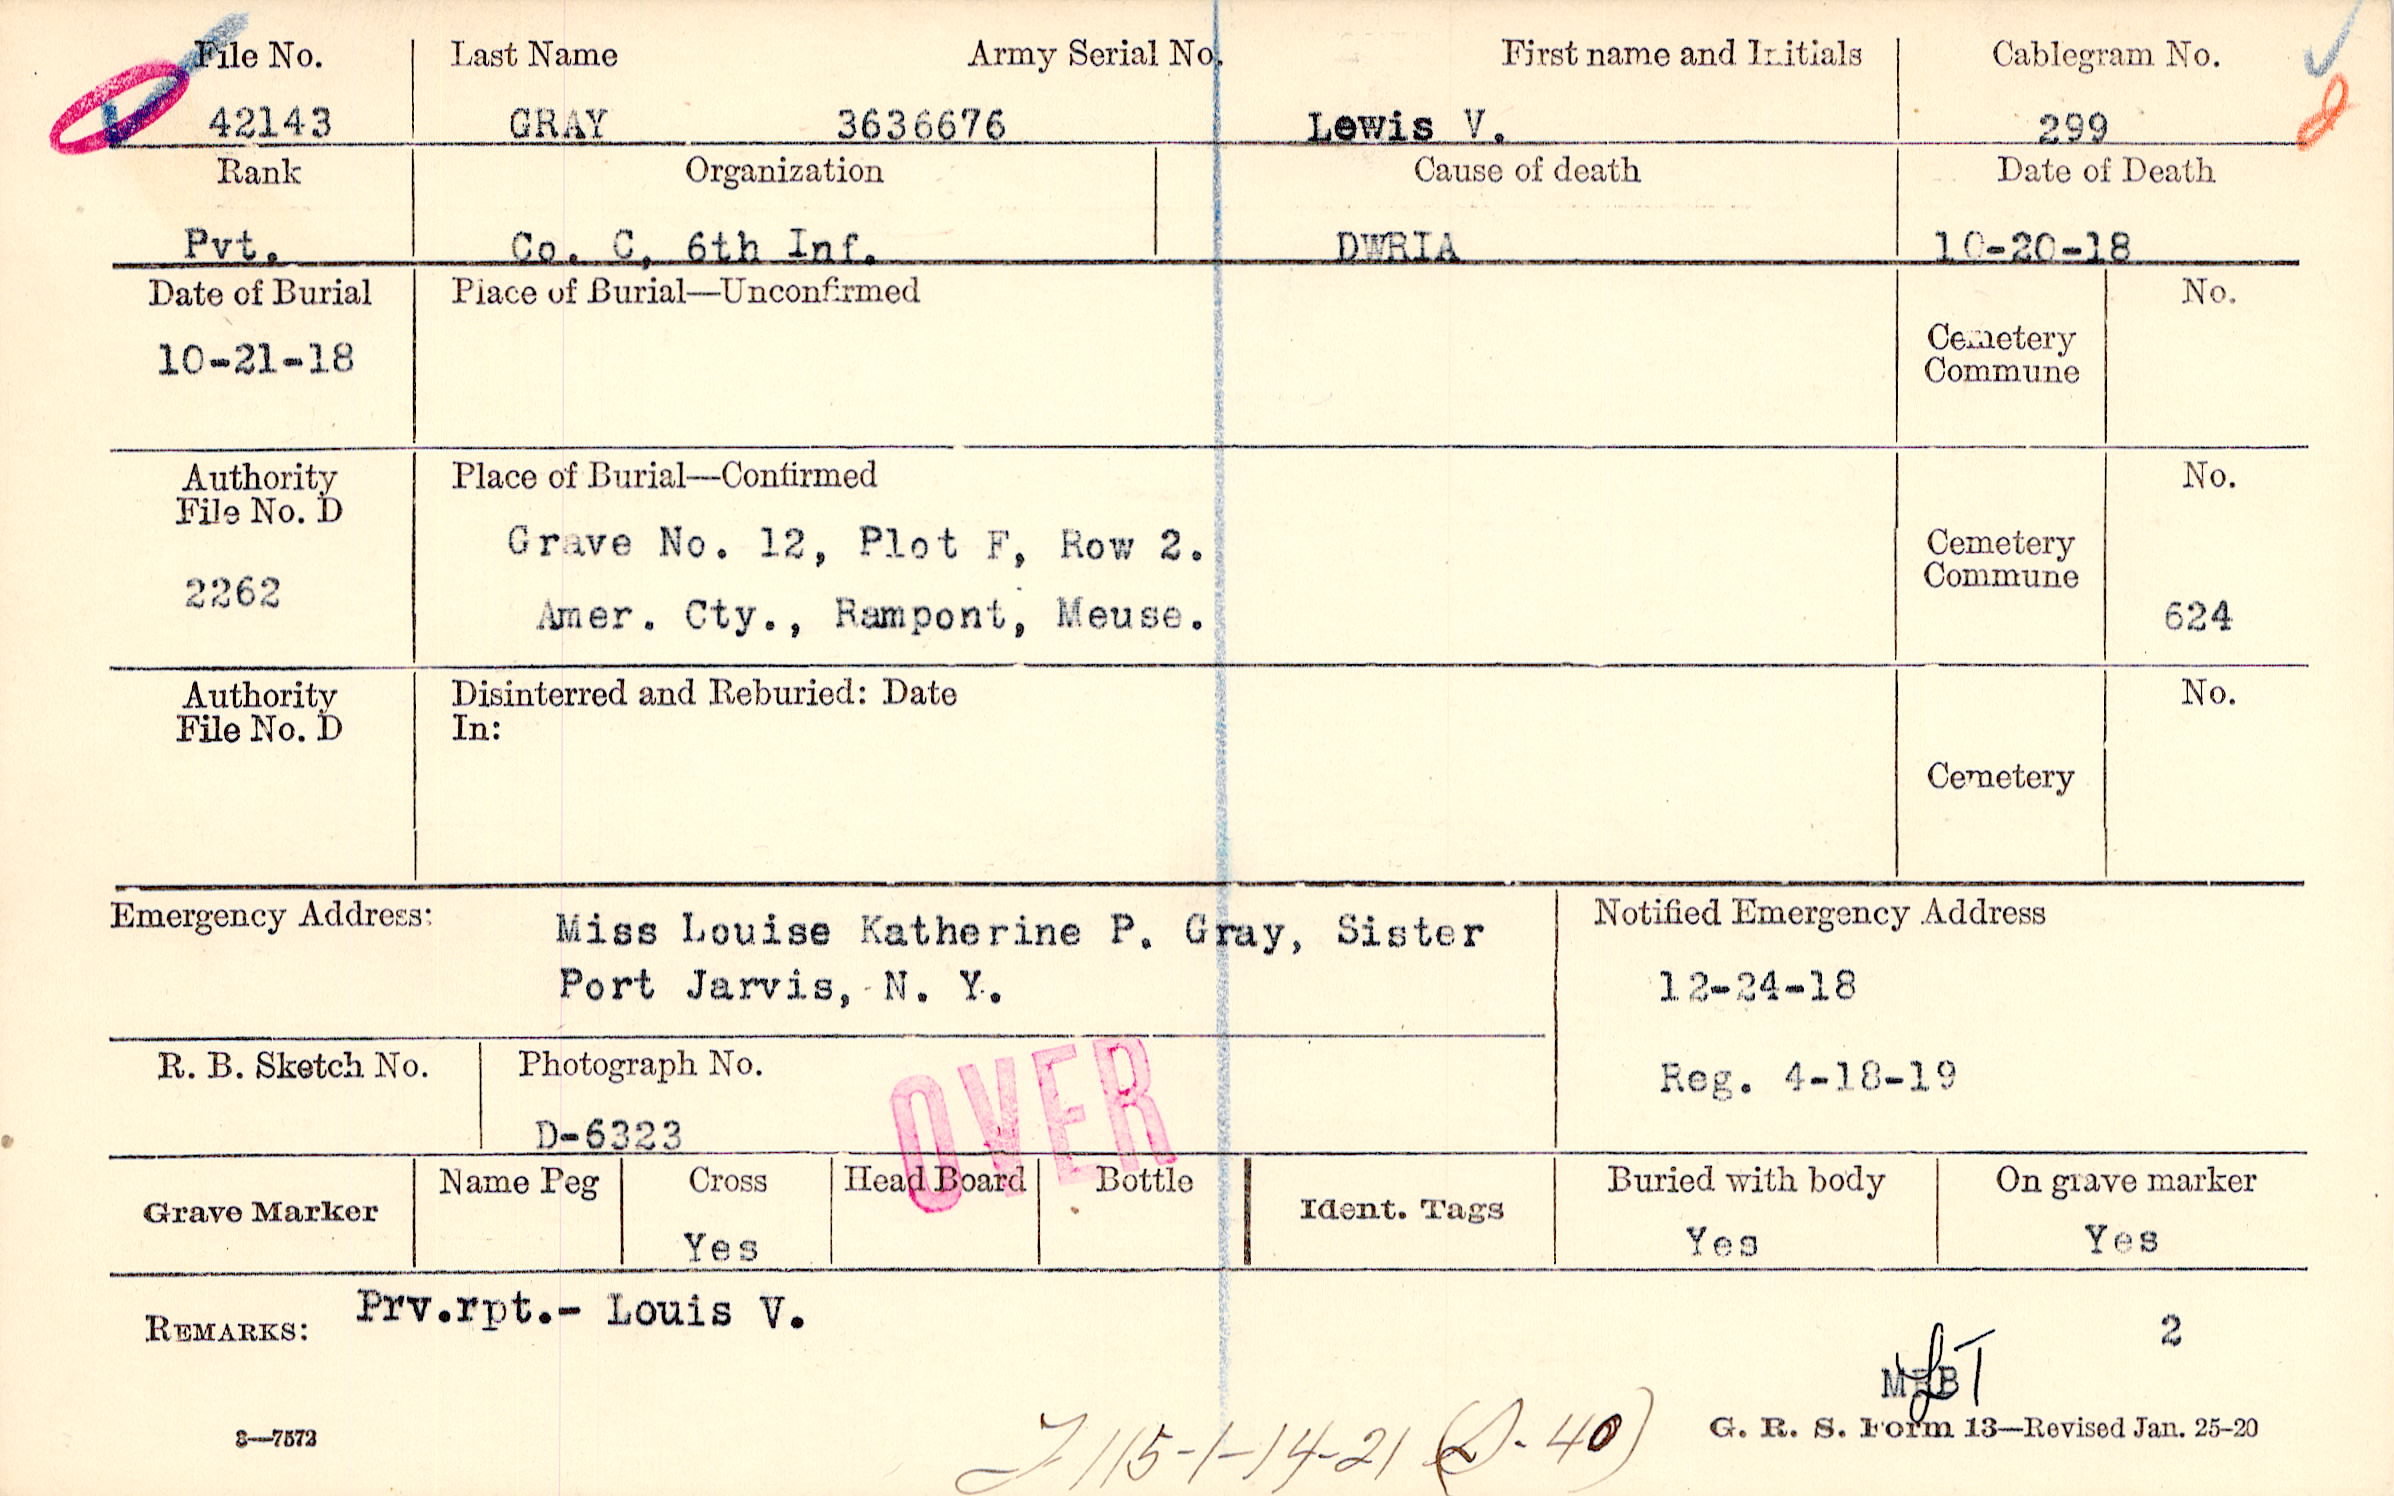 File No. Last Name Army Serial No. First name and Initials Cablegram No.
42143 GRAY 3636676 Lewis V. 299
Rank Organization Cause of death Date of Death
Pvt. Co. C, 6th Inf. DWRIA 10-20-18
Date of Burial Place of Burial—Unconfirmed No.
10-21-18
Cemetery
Commune
Authority Place of Burial—Confirmed No.
File No. D
Grave No. 12, Plot F, Row 2.
Cemetery
Commune
2262
Amer. Cty., Rampont, Meuse.
624
Authority Disinterred and Reburied: Date No.
File No. D In:
Cemetery
Emergency Address: Miss Louise Katherine P. Gray, Sister
Port Jarvis, N. Y.
Notified Emergency Address
12-24-18
Reg. 4-18-19
R. B. Sketch No. Photograph No.
D-6323
OVER
Grave Marker Name Peg Cross Head Board Bottle Ident. Tags Buried with body On grave marker
Yes Yes Yes
REMARKS: Prv.rpt.- Louis V.
2
3—7573
115-1-14-21 (D-40)
G. R. S. Form 13—Revised Jan. 25-20